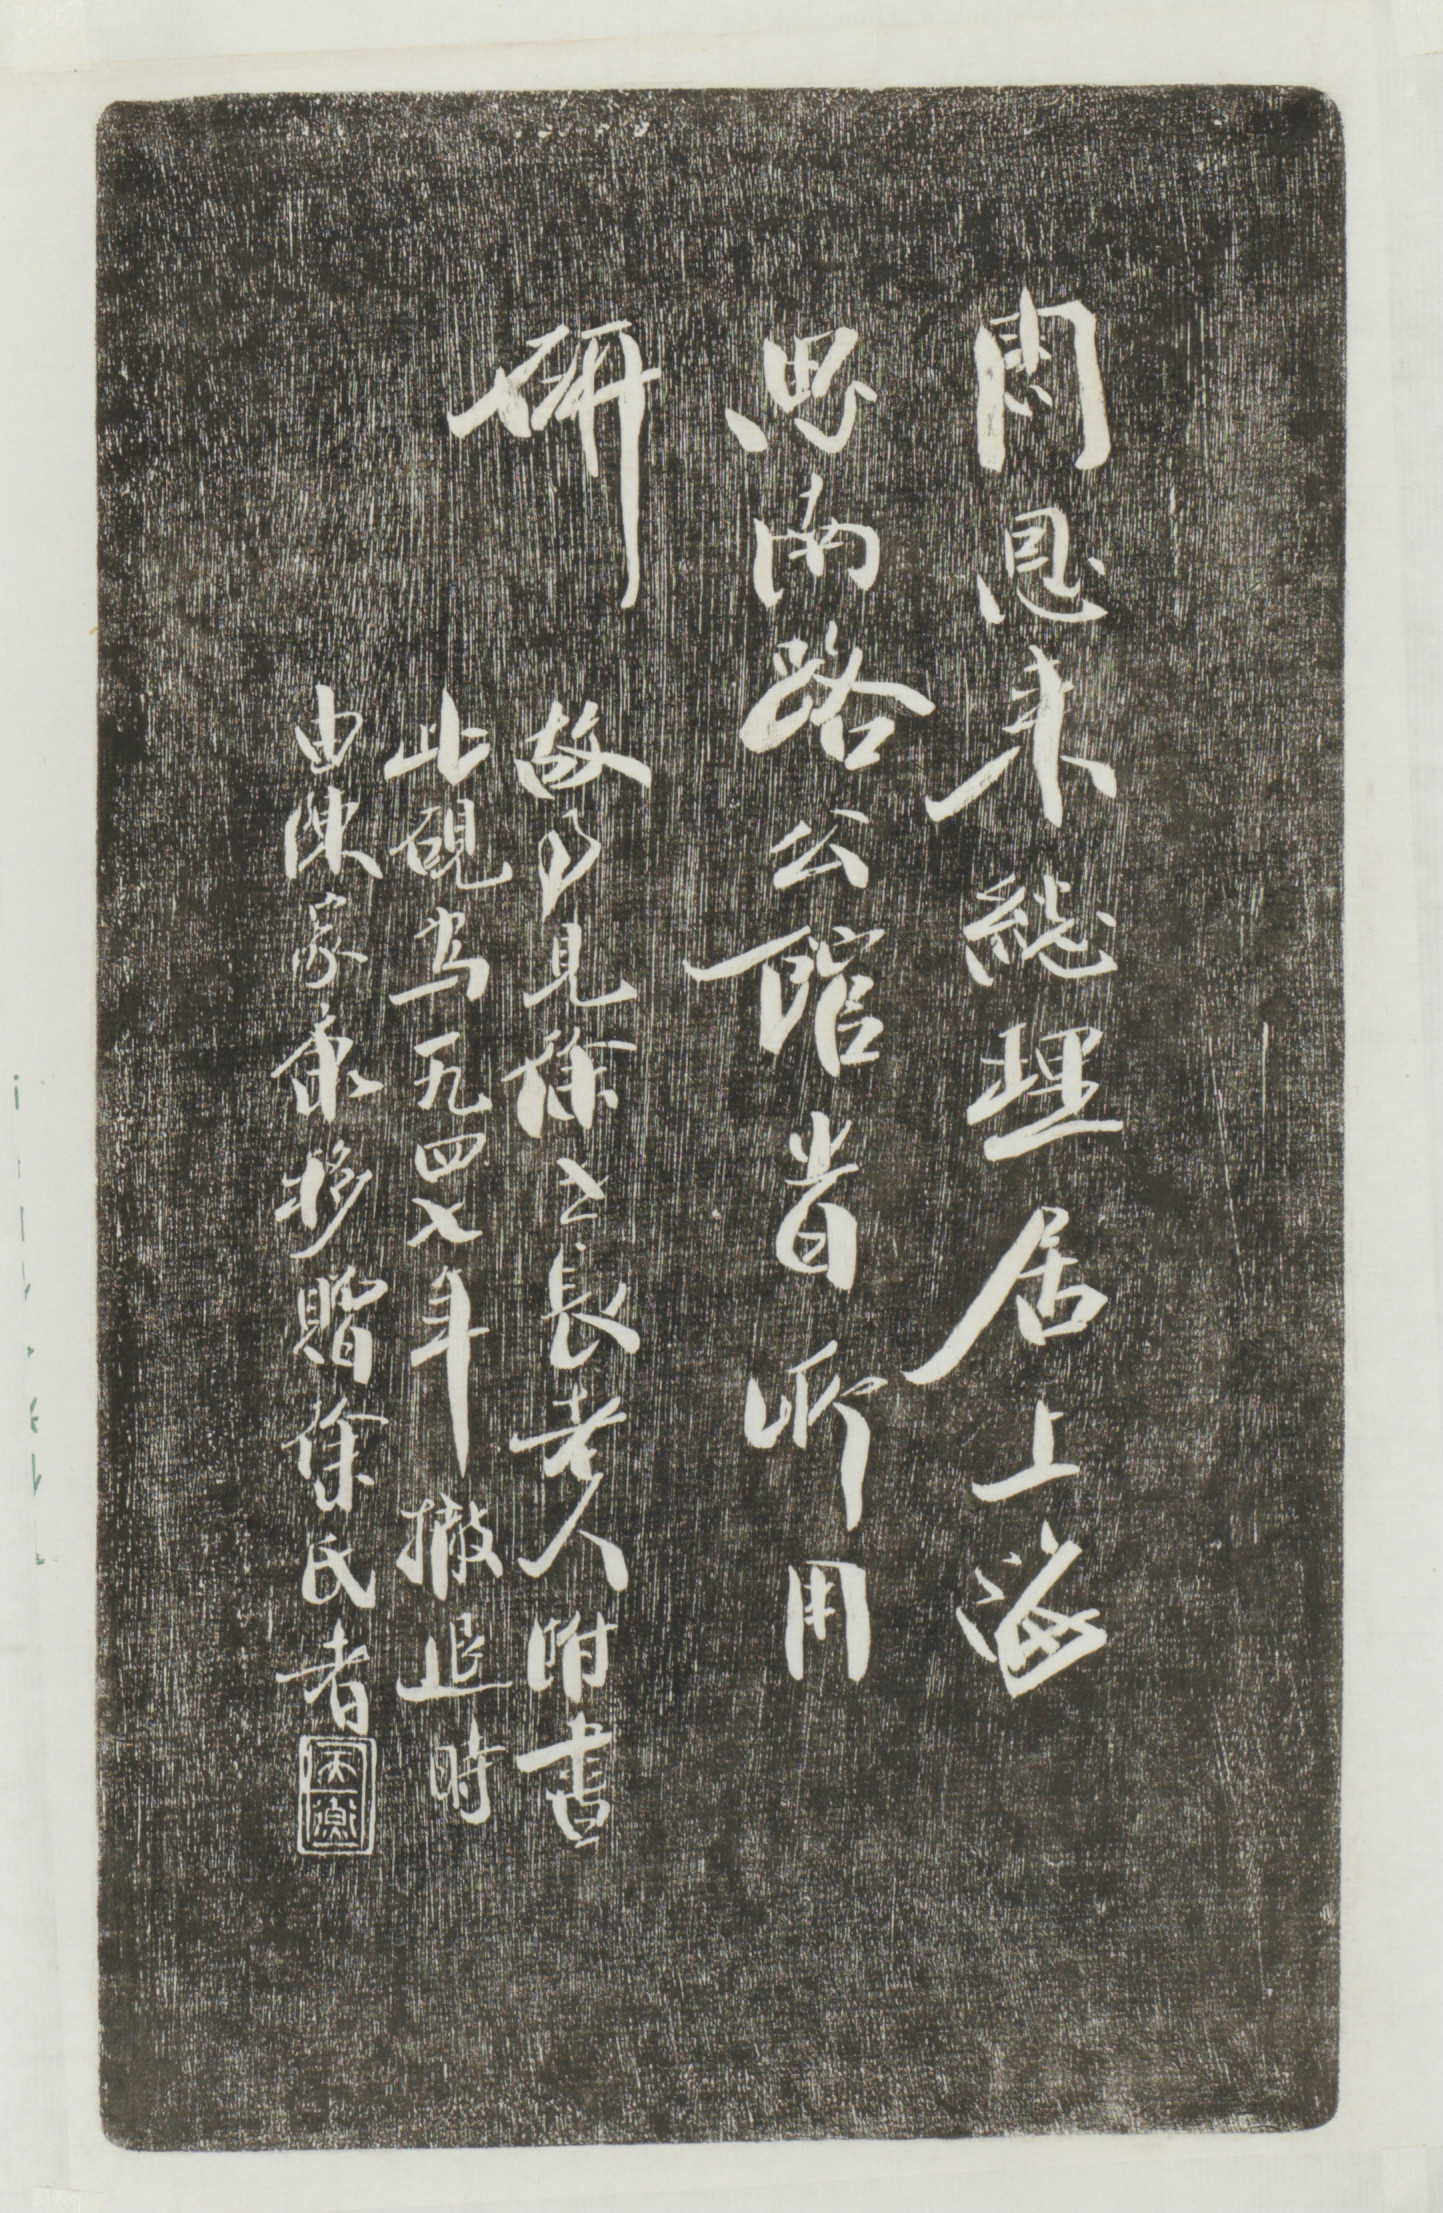 周恩来総理居上海
思南路公館旹所用
研
故乃見徐之長老人附書
此硯当一九四七年撤退時
由陳家康移贈徐氏者